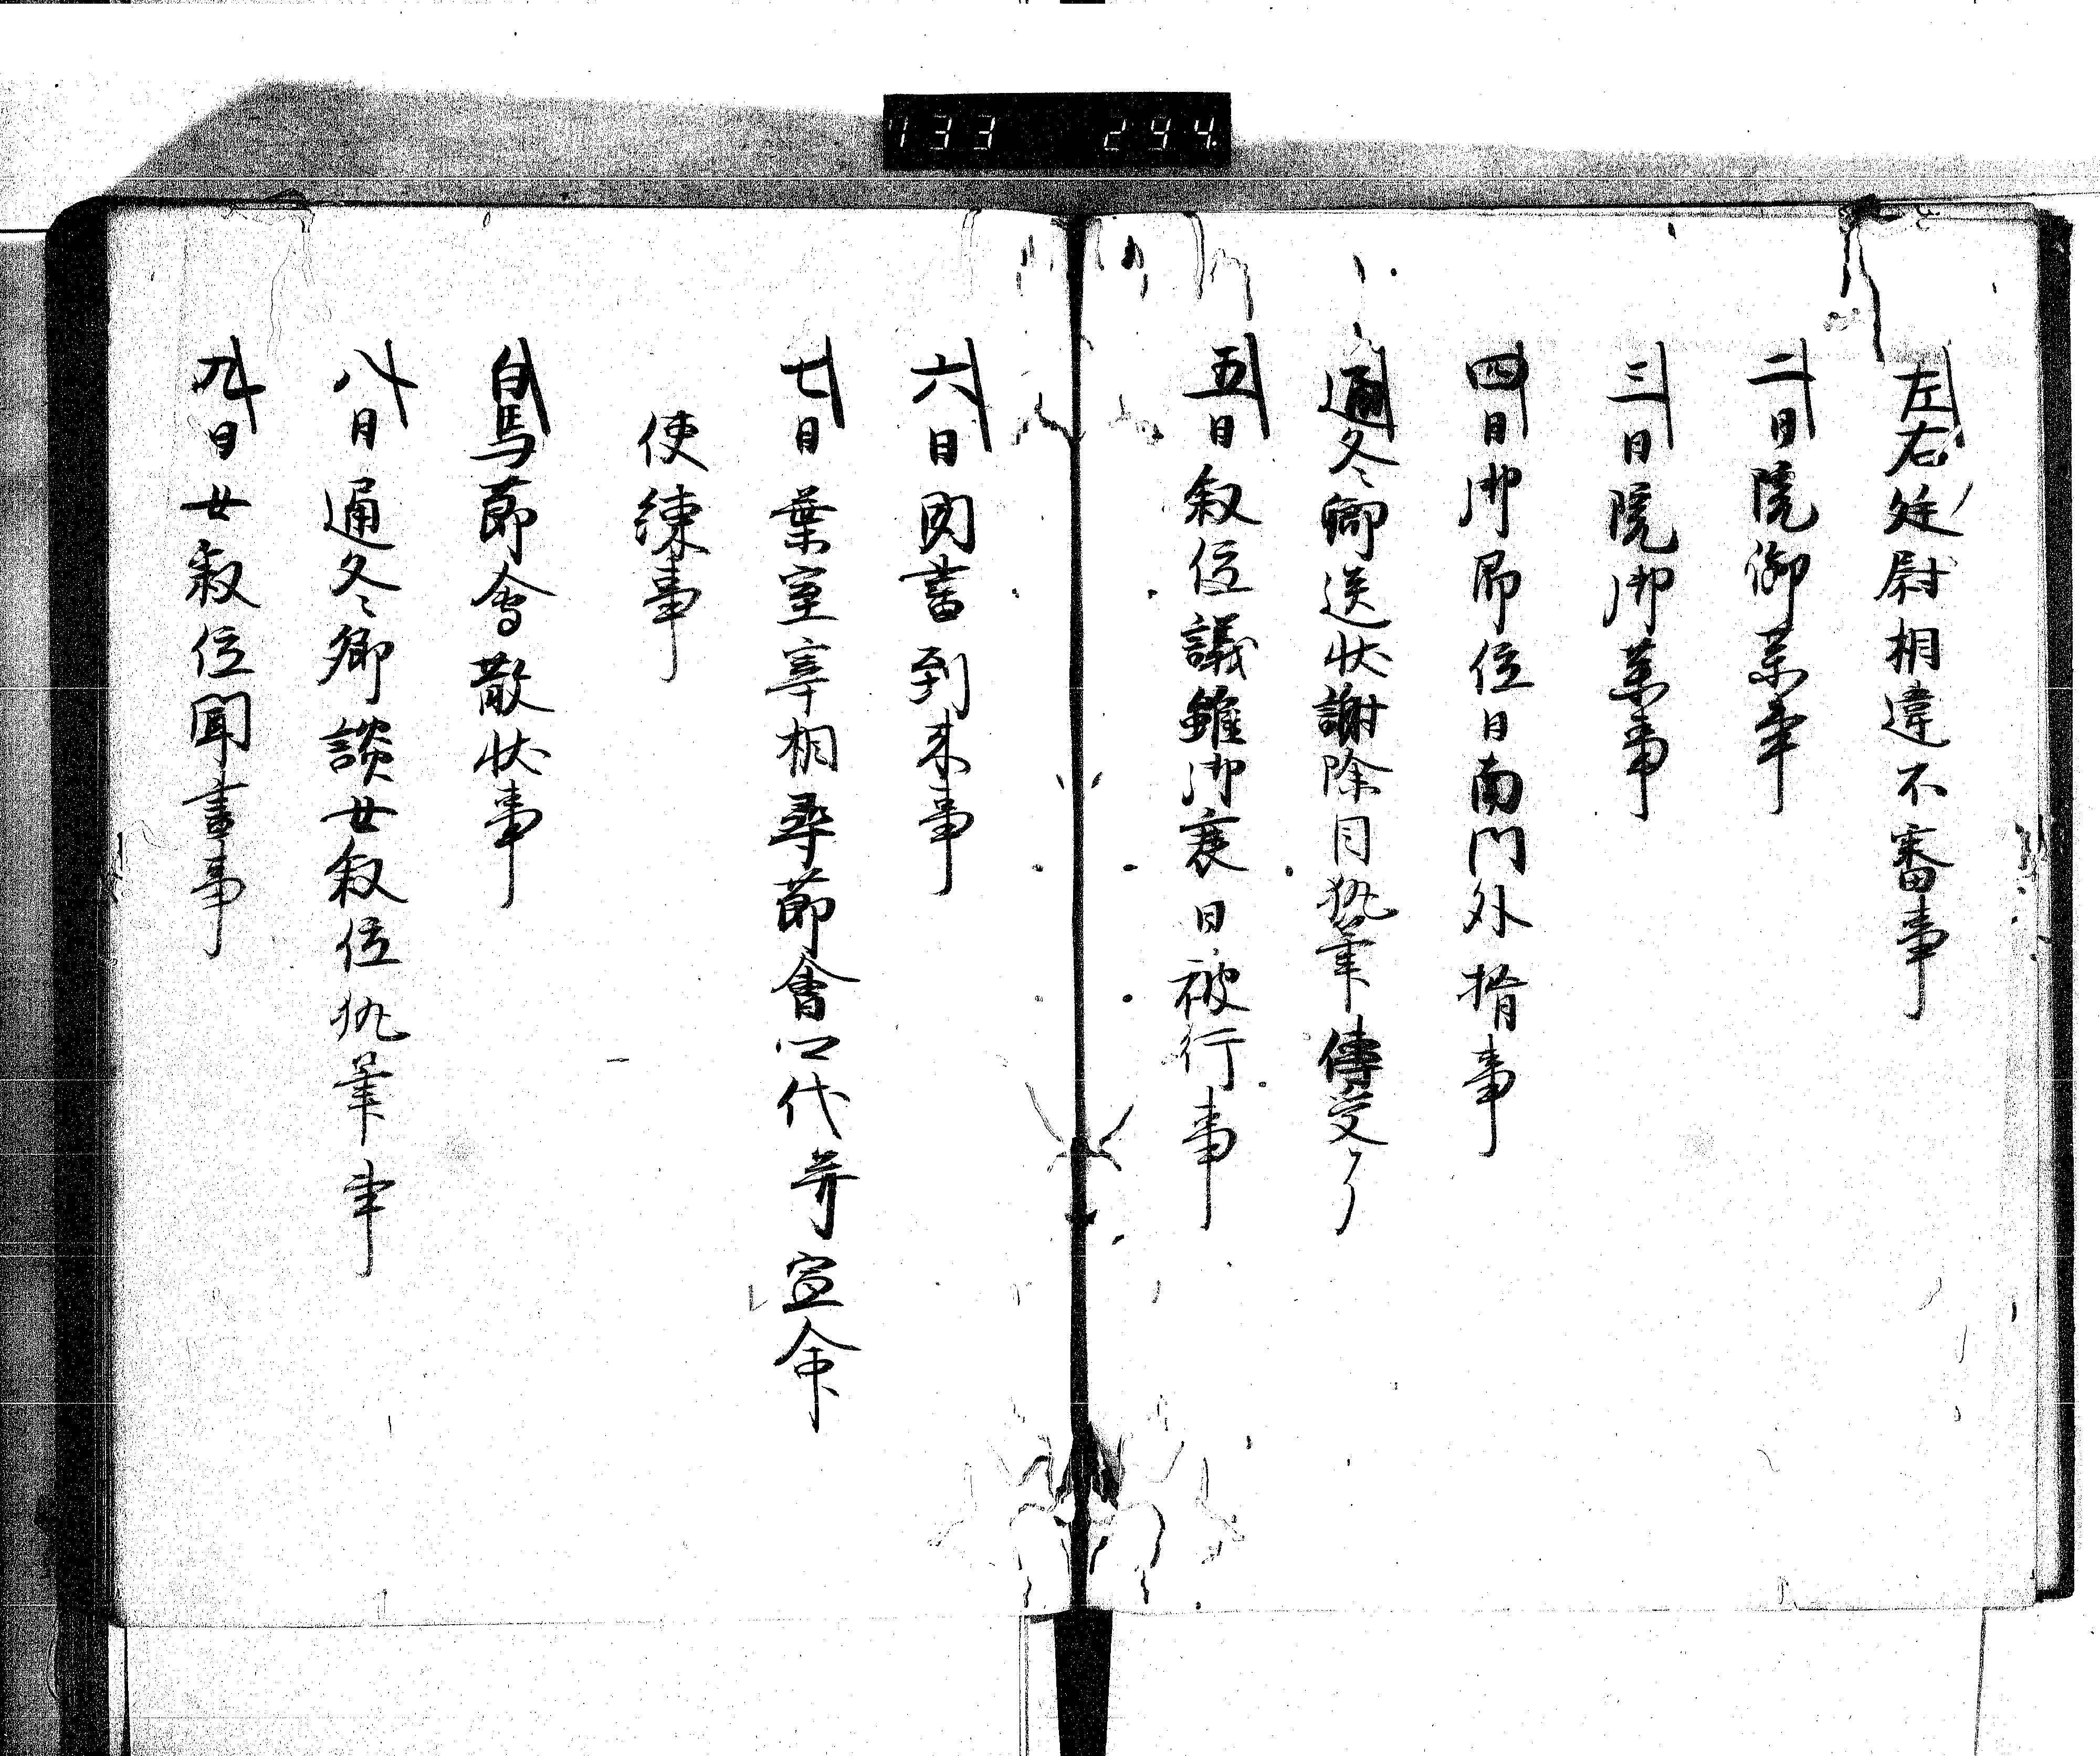 133 294
左右廷尉相違不審事
二日院御薬事
三日院御薬事
四日御即位日南門外揖事
通冬卿送状謝除目執筆傳受事
五日叙位議雖御衰日被行事
六日國書到来事
七日葉室宰相尋節會以代并宣命
使練事
白馬節會散状事
八日通冬卿談女叙位執筆事
九日女叙位聞書事